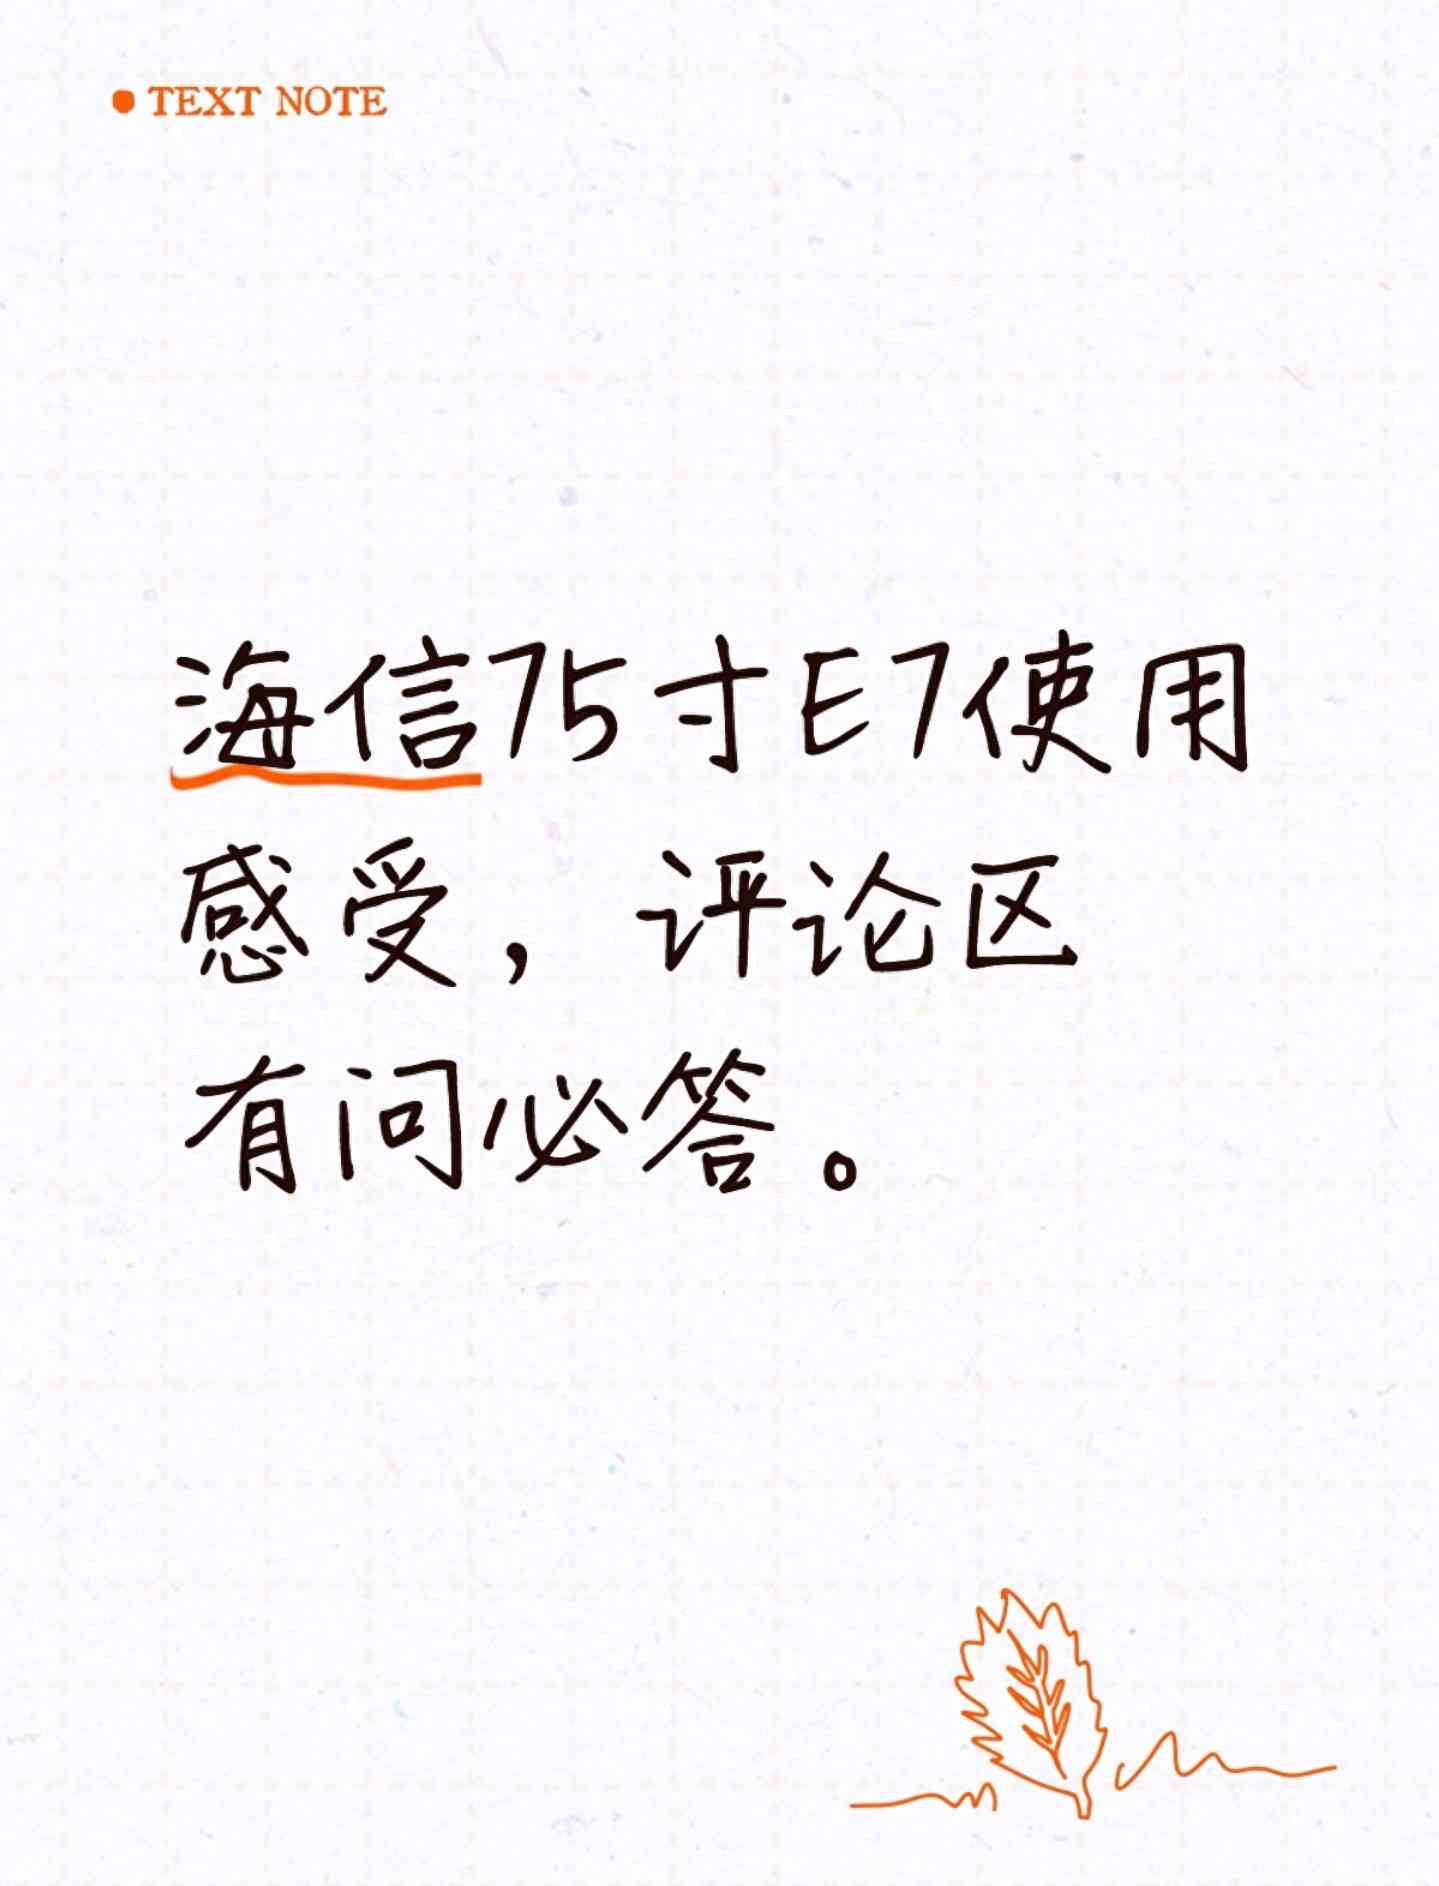 TEXT NOTE
海信75寸E7使用
感受，评论区
有问必答。